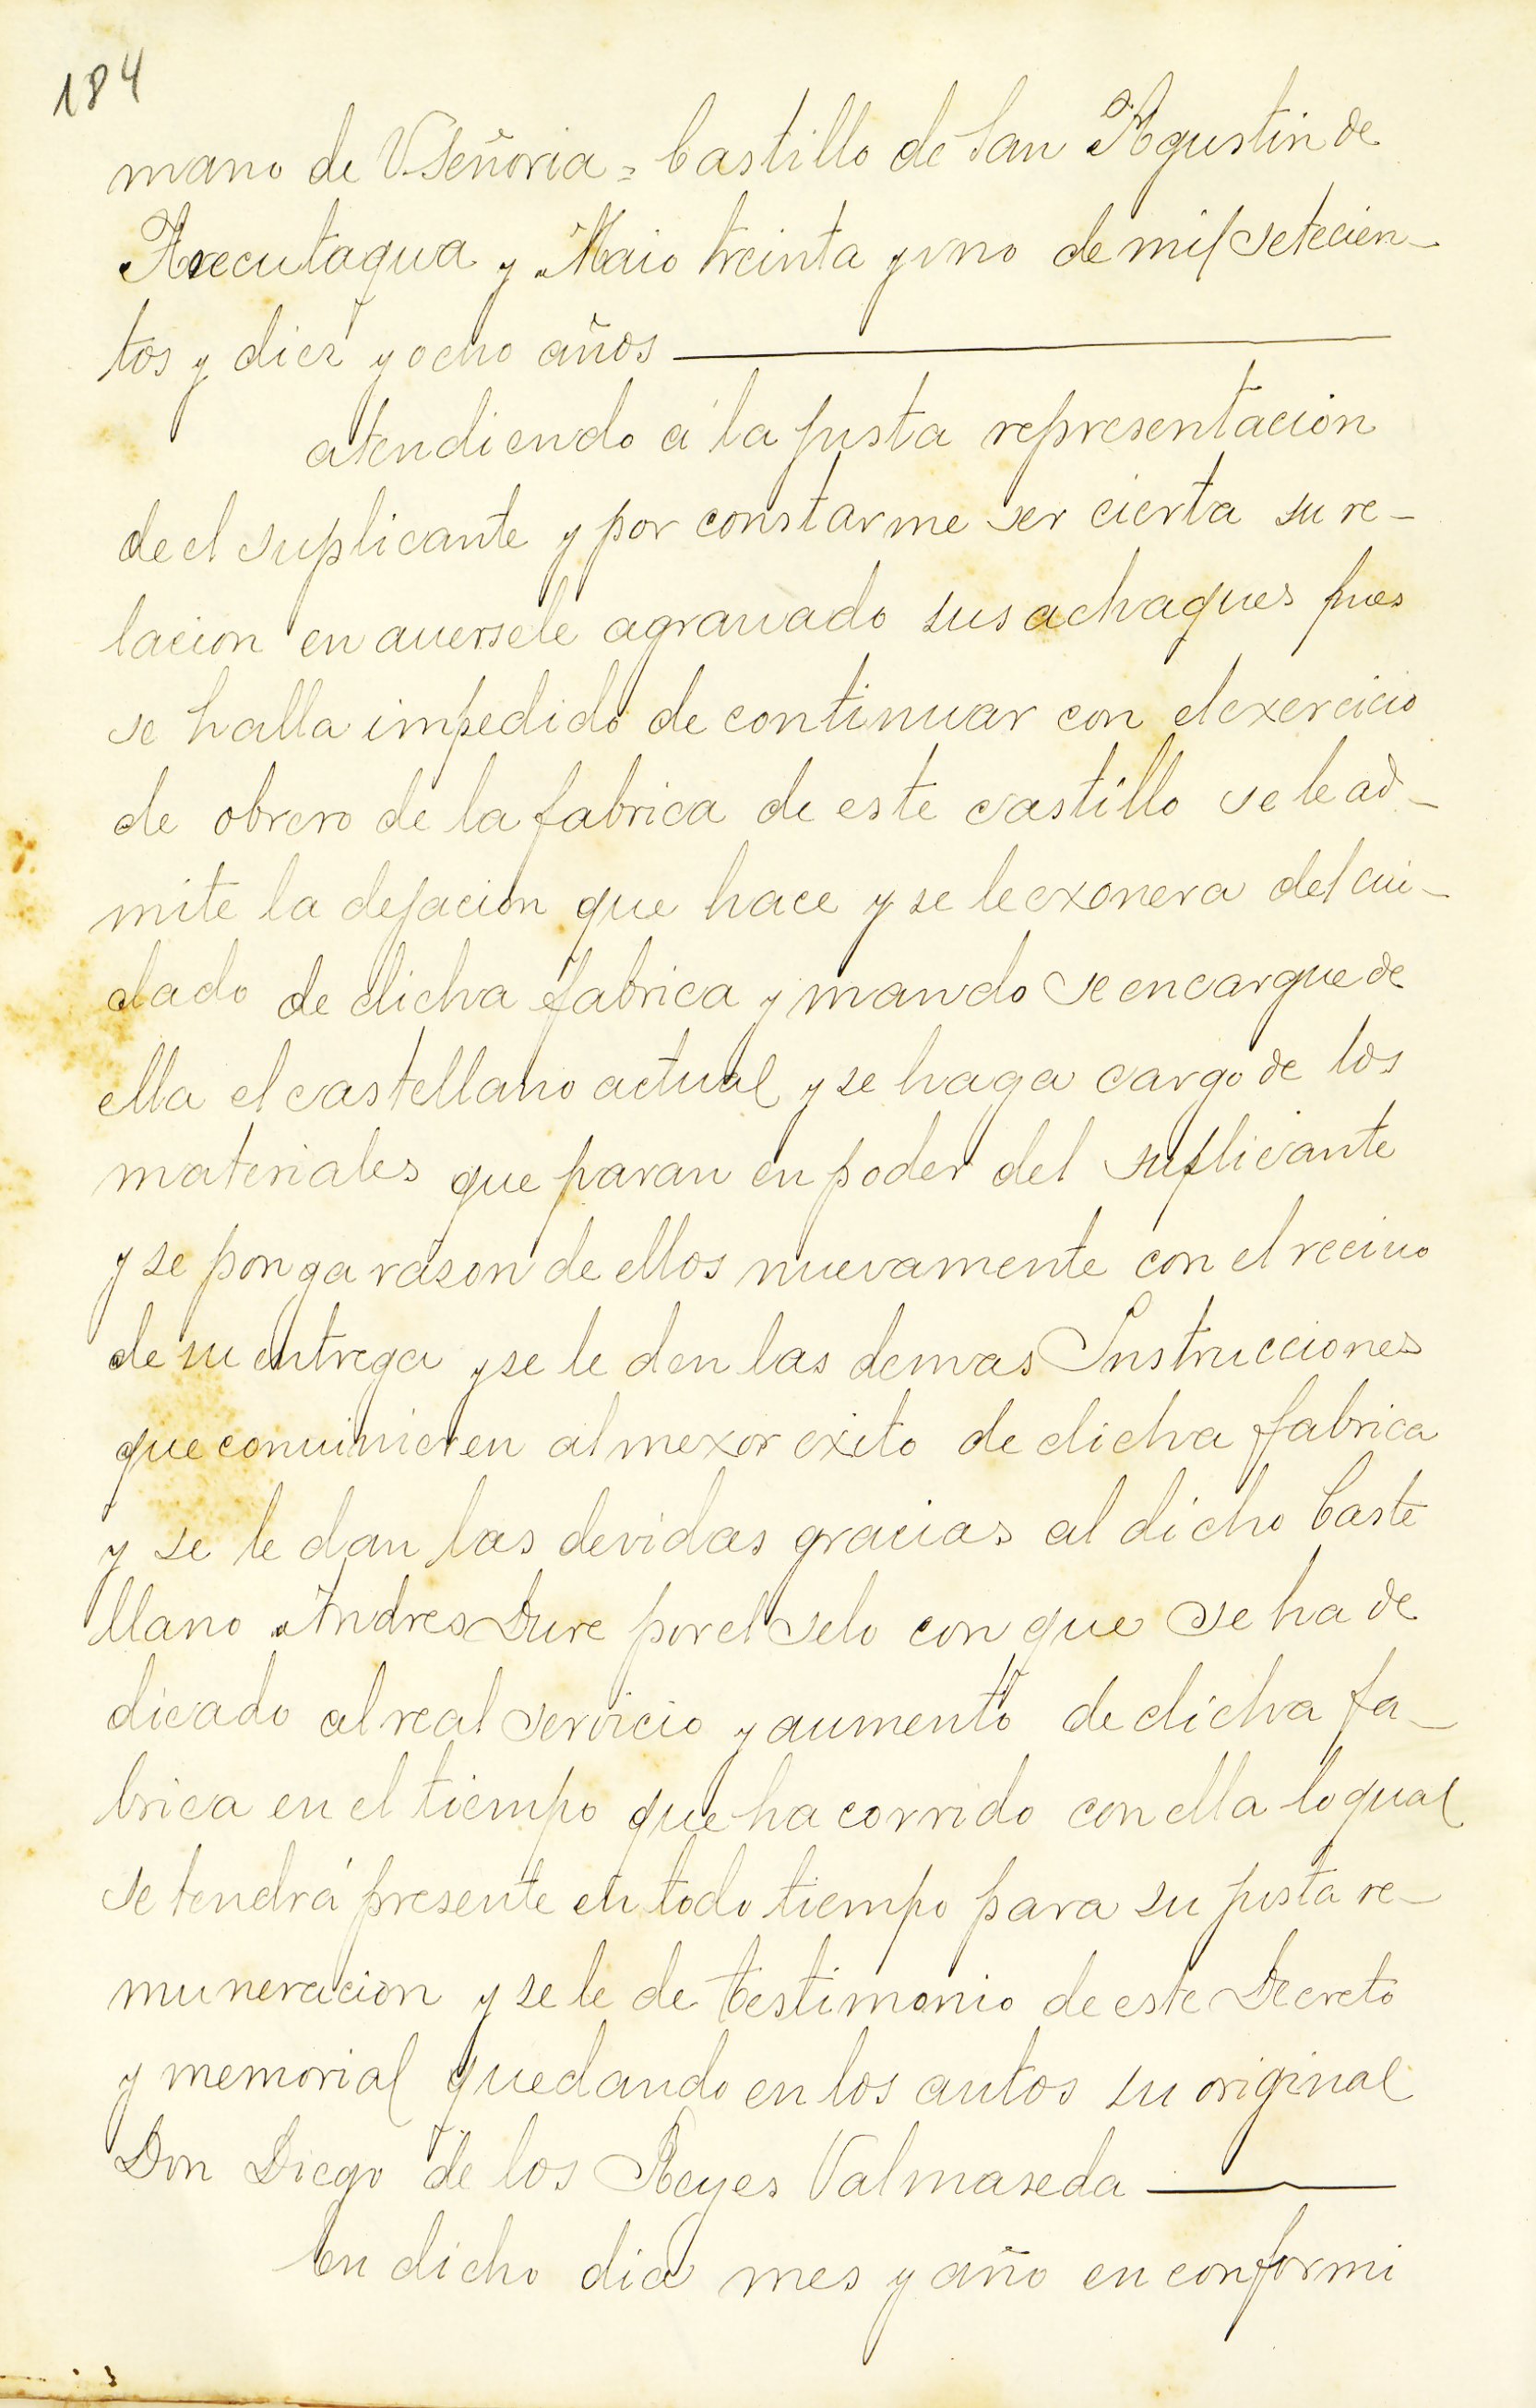 184
mano de VSeñoria = Castillo de San Agustin de
Arecutagua y Maio treinta y vno de mil setecien-
tos y diez y ocho años
atendiendo á la justa representacion
de el suplicante y por constarme ser cierta su re-
lacion en auersele agrauado sus achaques pues
se halla impedido de continuar con el exercicio
de obrero de la fabrica de este castillo se le ad-
mite la dejacion que hace y se le exonera del cui-
dado de dicha fabrica y mando se encargue de
ella el castellano actual y se haga cargo de los
materiales que paran en poder del suplicante
y se ponga rason de ellos nuevamente con el reciuo
de su entrega y se le den las demas Instrucciones
que conuinieren al mexor exito de dicha fabrica
y se le dan las devidas gracias al dicho Caste
llano Andres Dure por el selo con que se ha de
dicado al real servicio y aumento de dicha fa-
brica en el tiempo que ha corrido con ella lo qual
se tendrá presente en todo tiempo para su justa re-
muneracion y se le de testimonio de este Decreto
y memorial quedando en los autos su original
Don Diego de los Reyes Valmaseda
En dicho dia mes y año en conformi